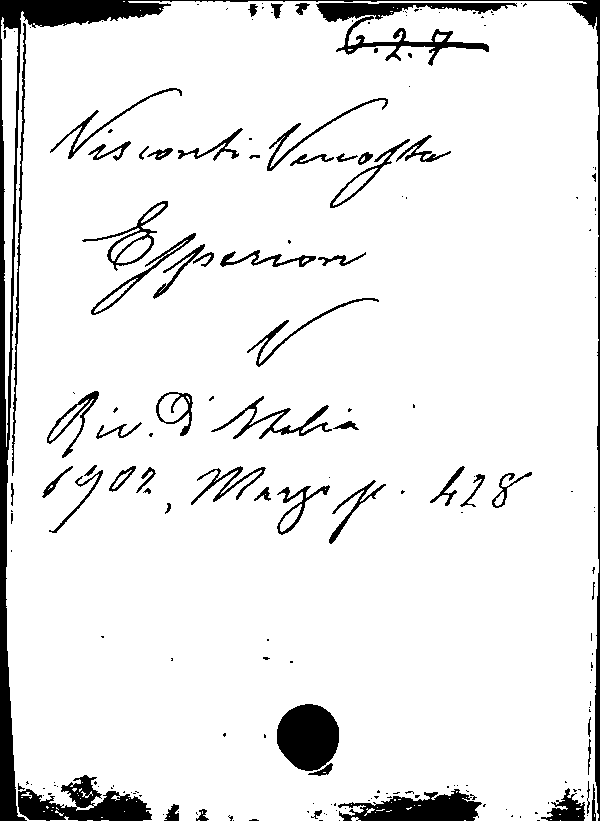 6.2.7
Visconti-Venosta
Esperion
V
Riv. d'Italia
1902, Marzo p. 428